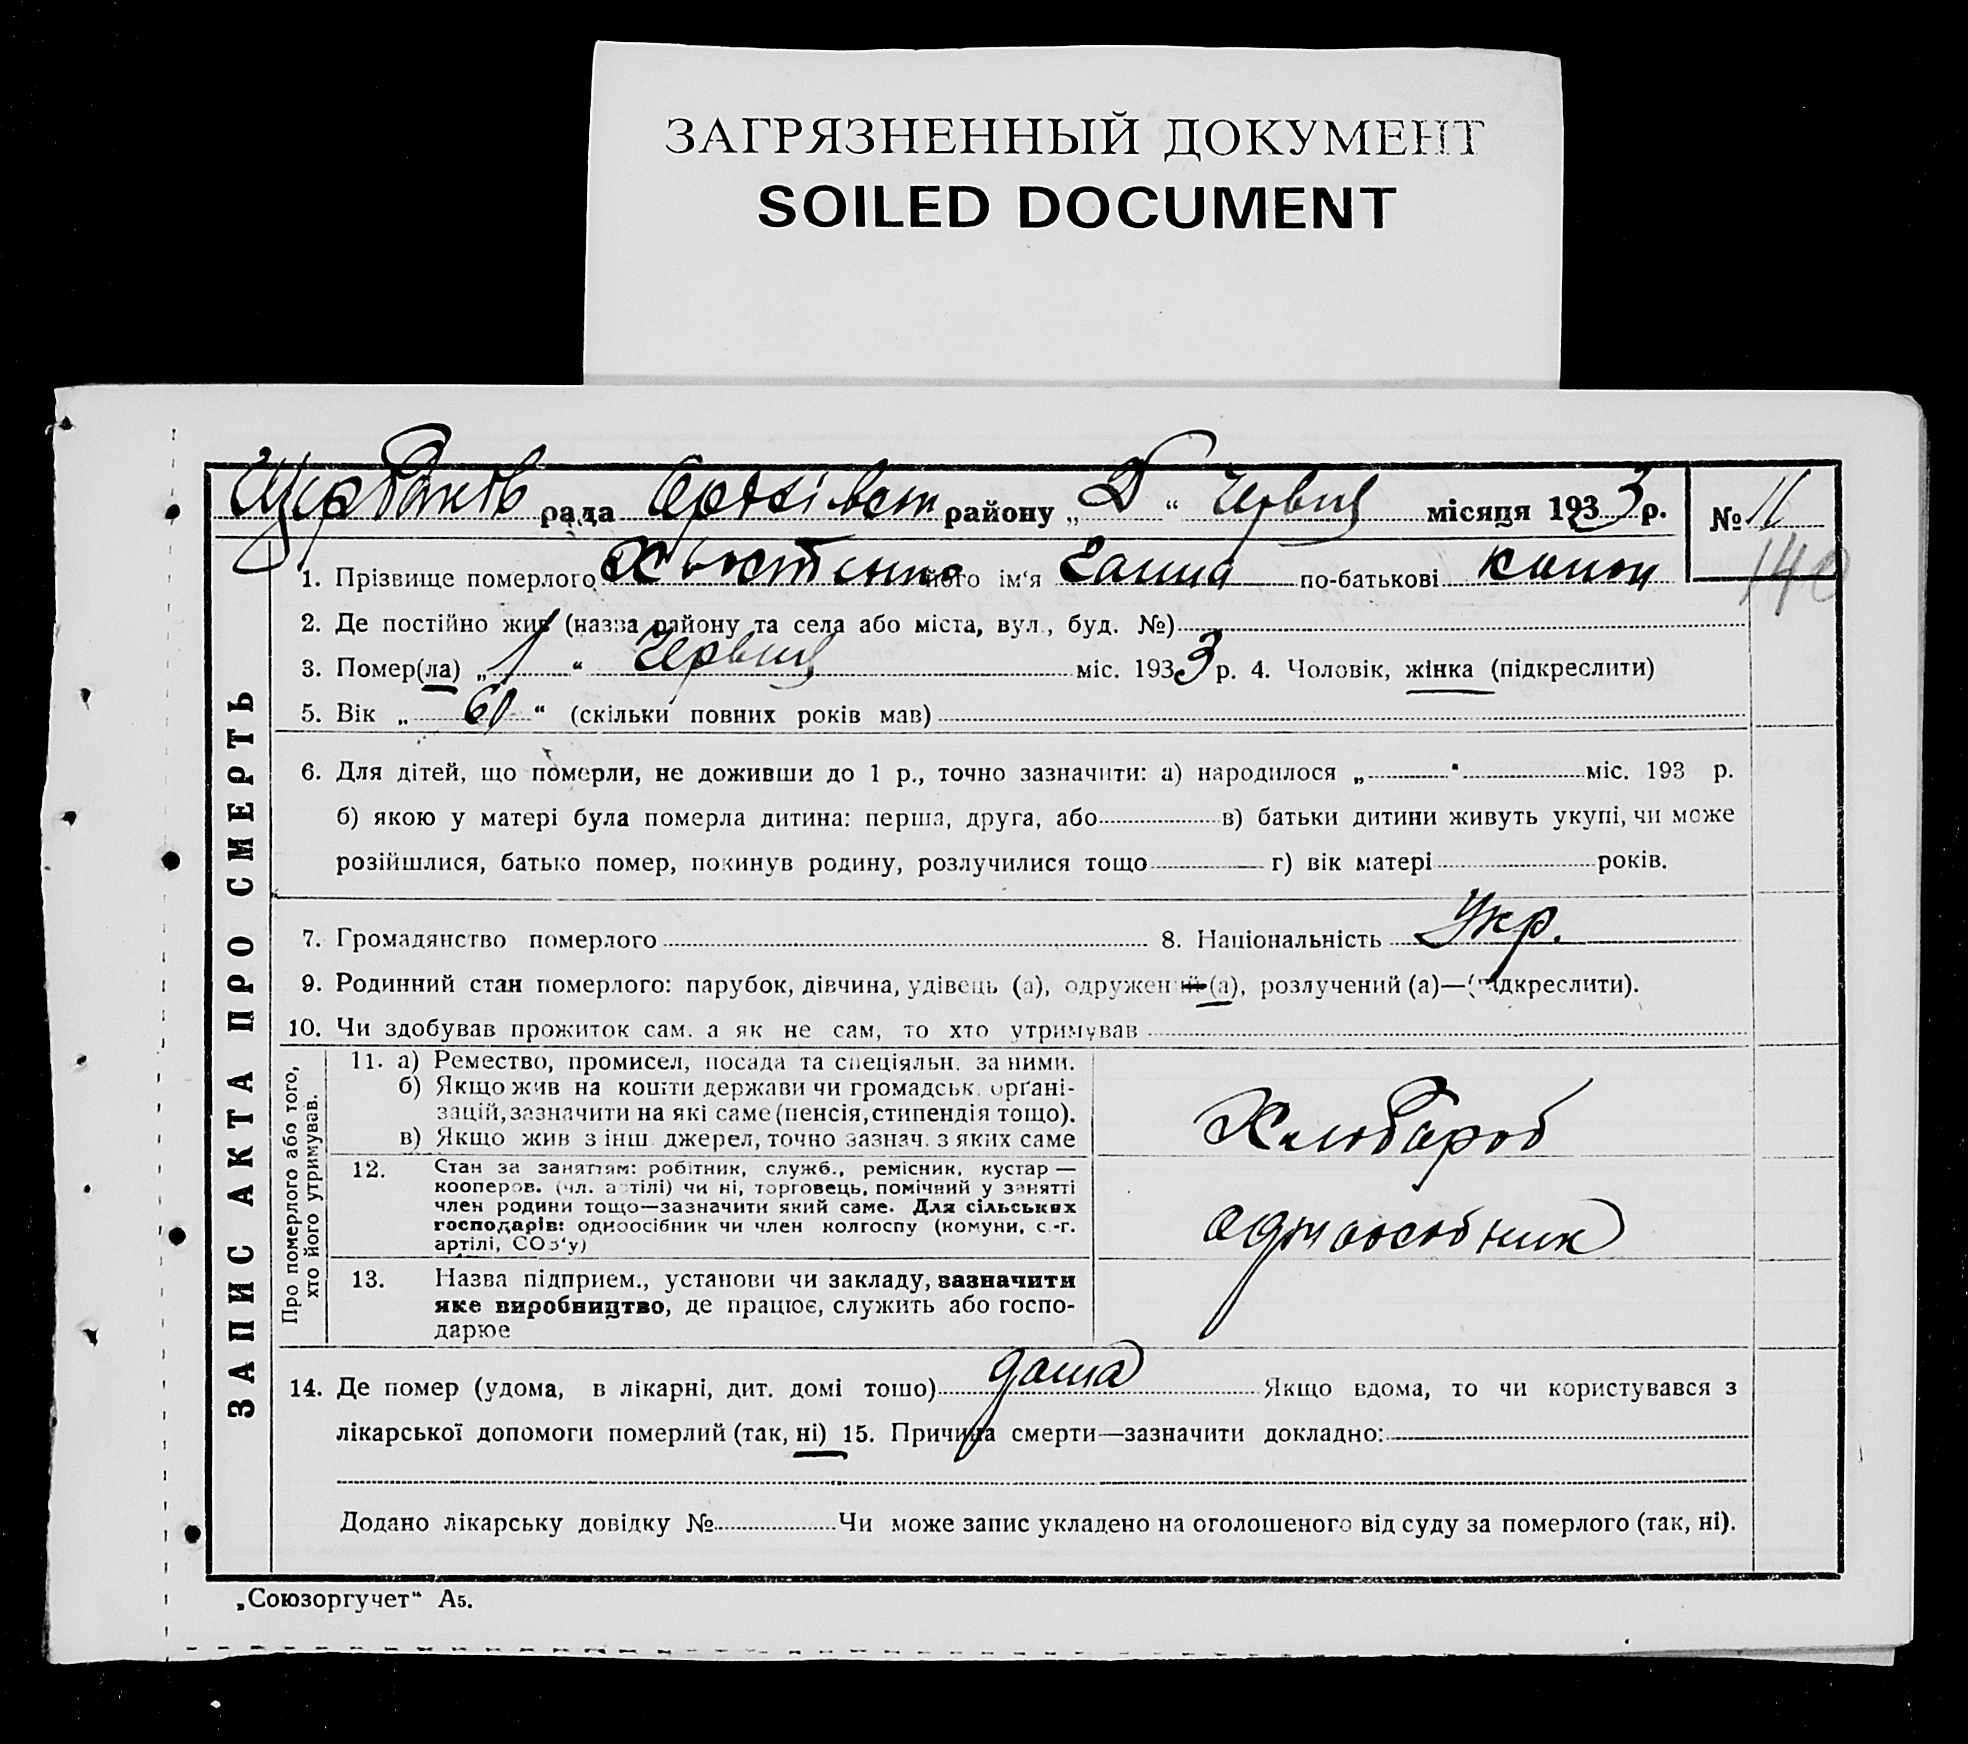 ЗАГРЯЗНЕННЫЙ ДОКУМЕНТ
SOILED DOCUMENT
рада району „ “ Червця місяця 1933 р. № 11
140
1. Прізвище померлого Хвостенко його ім‘я Ганна по-батькові
2. Де постійно жив (назва району та села або міста, вул., буд. №)
3. Помер(ла) „1“ Червця міс. 1933 р. 4. Чоловік, жінка (підкреслити)
5. Вік „60“ (скільки повних років мав)
6. Для дітей, що померли, не доживши до 1 р., точно зазначити: а) народилося „ “ міс. 193 р.
б) якою у матері була померла дитина: перша, друга, або в) батьки дитини живуть укупі, чи може
розійшлися, батько помер, покинув родину, розлучилися тощо г) вік матері років.
7. Громадянство померлого 8. Національність Укр.
9. Родинний стан померлого: парубок, дівчина, удівець (а), одружений (а), розлучений (а)—(підкреслити).
10. Чи здобував прожиток сам, а як не сам, то хто утримував
Про померлого або того,
хто його утримував.
11. а) Ремество, промисел, посада та спеціяльн. за ними.
б) Якщо жив на кошти держави чи громадськ. орґані-
зацій, зазначити на які саме (пенсія, стипендія тощо).
в) Якщо жив з інш. джерел, точно зазнач. з яких саме
Хлібороб
12. Стан за заняттям: робітник, служб., ремісник, кустар —
кооперов. (чл. артілі) чи ні, торговець, помічний у занятті
член родини тощо—зазначити який саме. Для сільських
господарів: одноосібник чи член колгоспу (комуни, с.-г.
артілі, СОз‘у)
одноособник
13. Назва підприєм., установи чи закладу, зазначити
яке виробництво, де працює, служить або госпо-
дарює
14. Де помер (удома, в лікарні, дит. домі тощо) дома Якщо вдома, то чи користувався з
лікарської допомоги померлий (так, ні) 15. Причина смерти—зазначити докладно:
Додано лікарську довідку № Чи може запис укладено на оголошеного від суду за померлого (так, ні).
ЗАПИС АКТА ПРО СМЕРТЬ
„Союзоргучет“ А5.